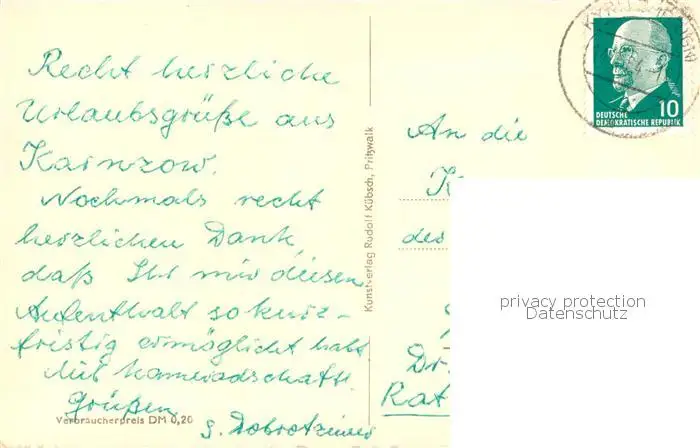 Recht herzliche
Urlaubsgrüße aus
Nochmals recht
herzlichen Dank,
daß Ihr mir diesen
Aufenthalt so kurz-
fristig ermöglicht habt
Mit kameradschaftl.
Grüßen
Verbraucherpreis DM 0,20
Kunstverlag Rudolf Kübsch, Pritzwalk
10
DEUTSCHE
DEMOKRATISCHE REPUBLIK
An die
K
des
Dr.
Rat
privacy protection
Datenschutz